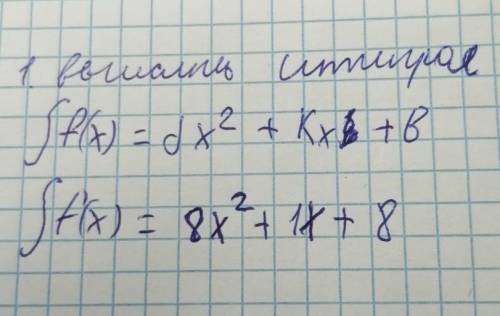 1. вычислить интеграл
∫f(x) = dx² + Kx + b
∫f'(x) = 8x² + 1x + 8